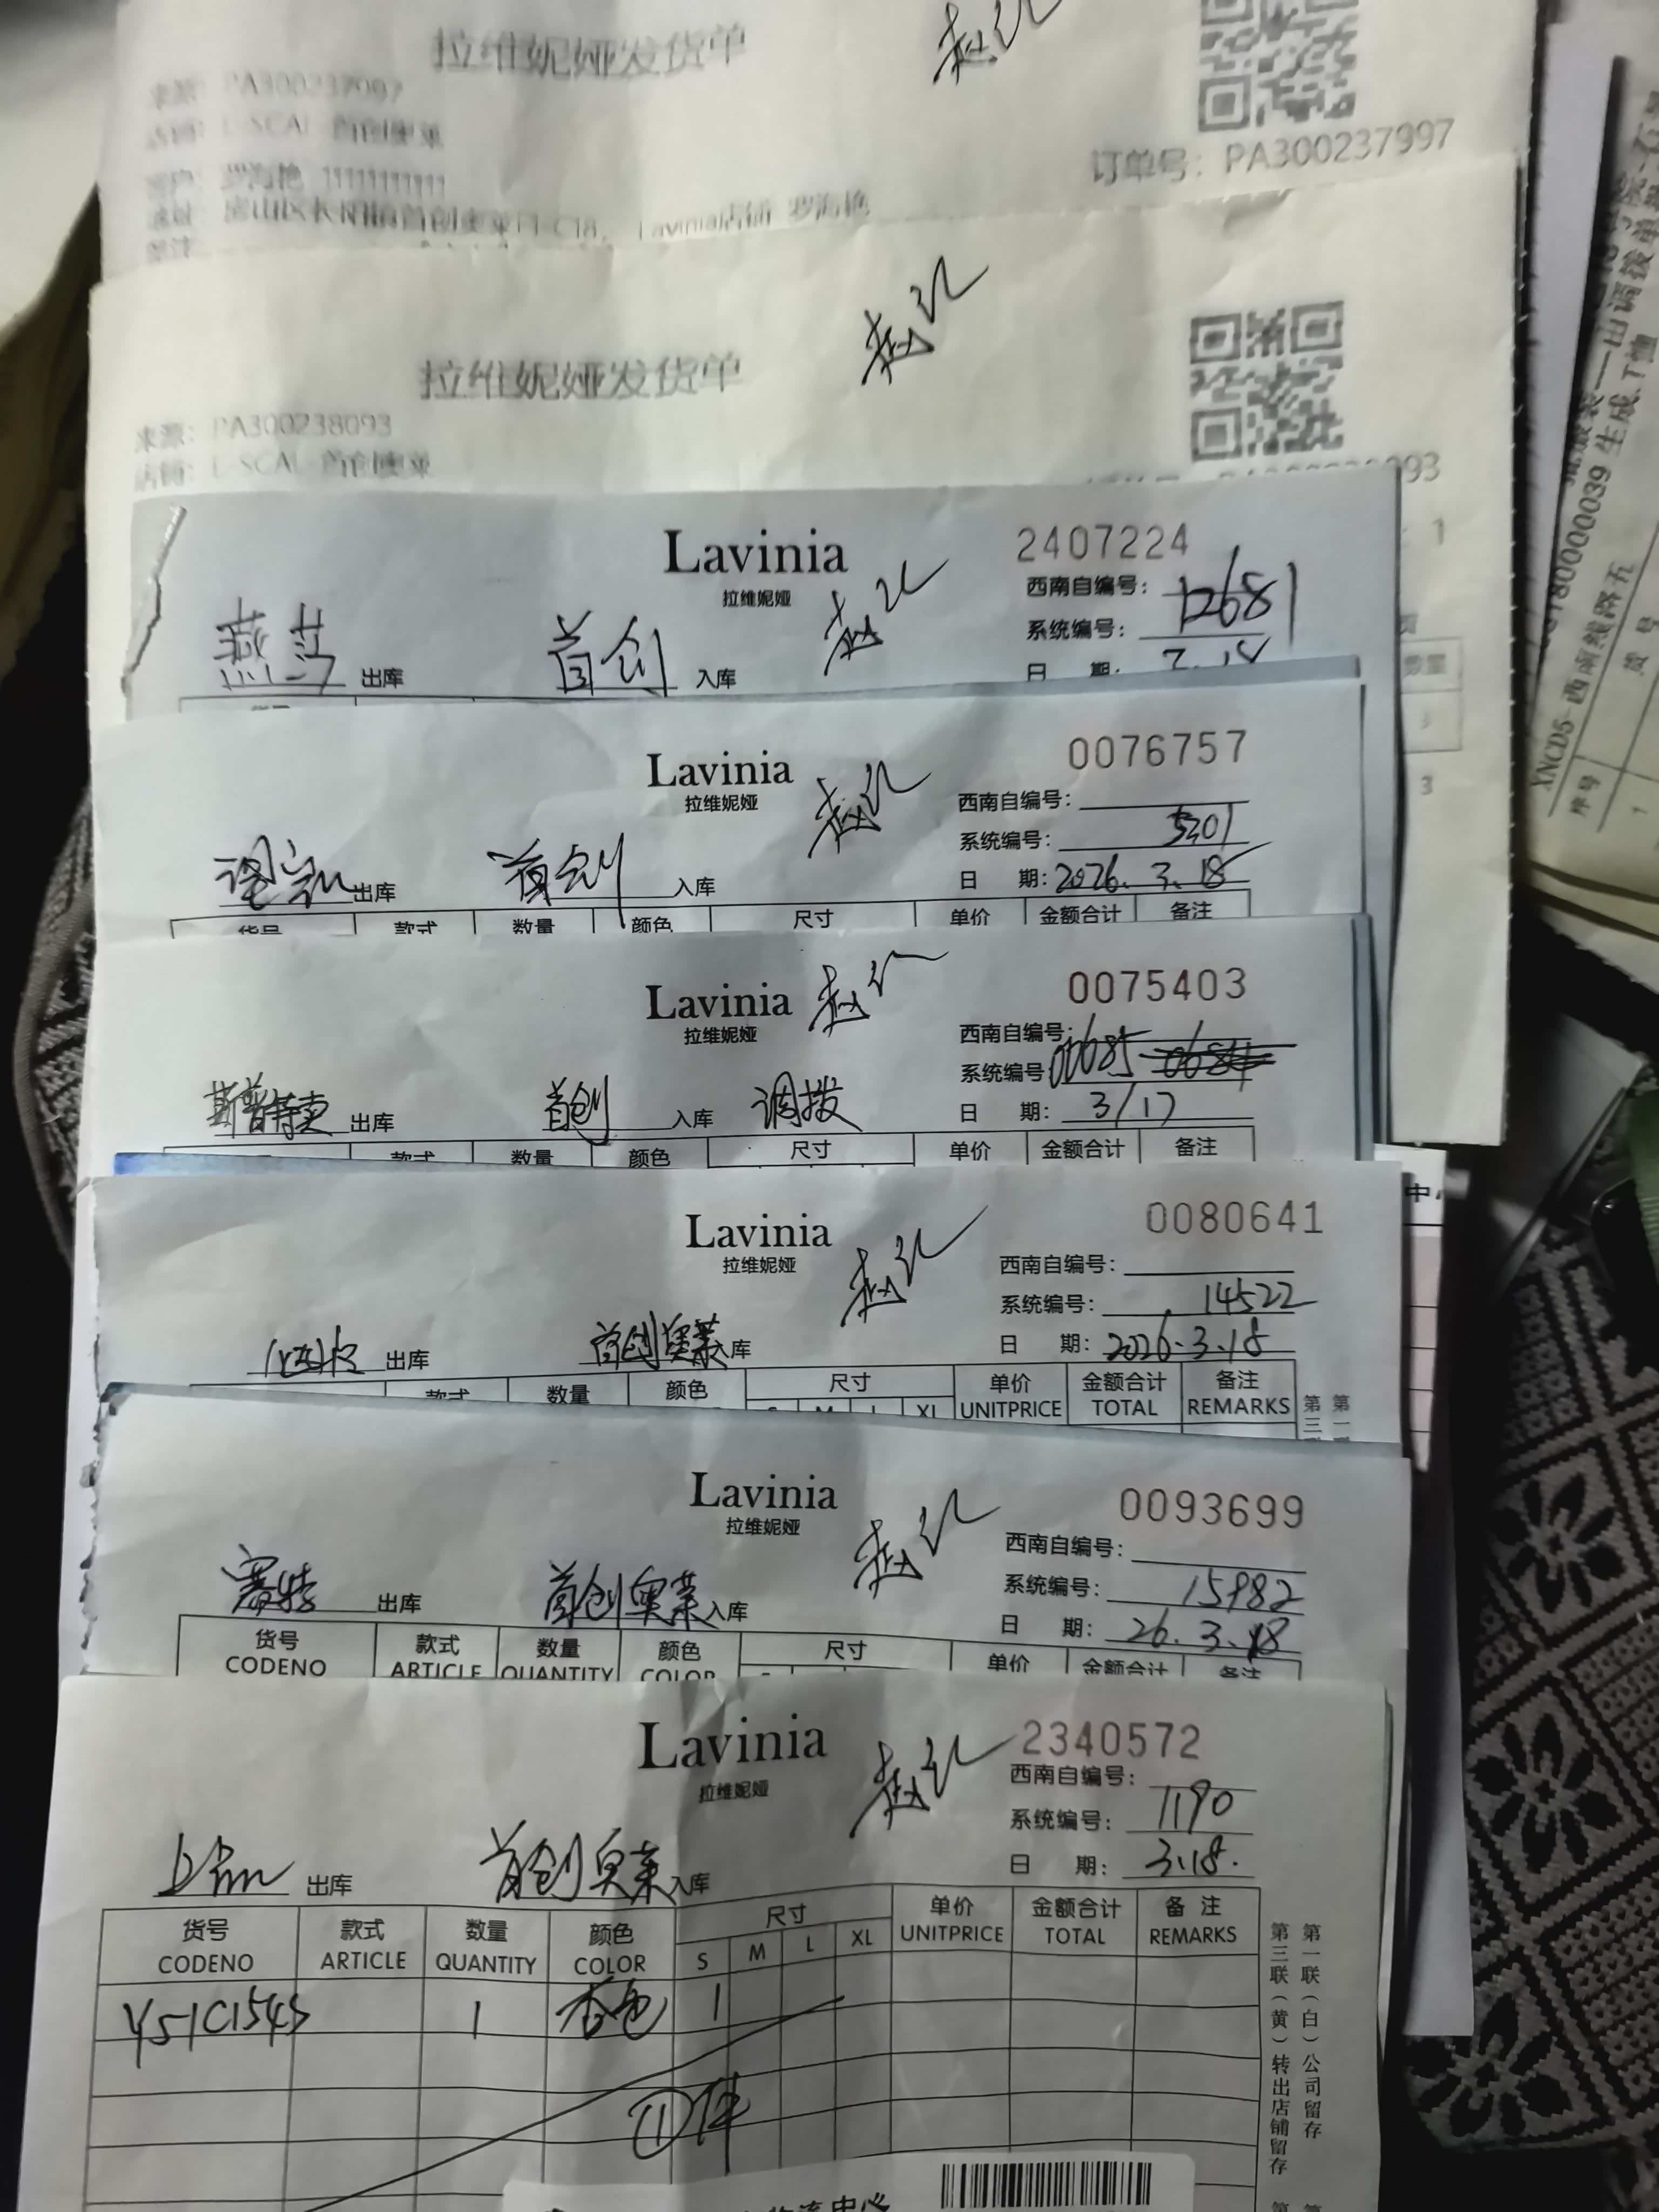 拉维妮娅发货单
来源: PA300237997
店铺: L-SCAL-首创奥莱
客户: 罗海艳 11111111111
订单号: PA300237997
首创奥莱 C18, Lavinia店铺 罗海艳
拉维妮娅发货单
来源: PA300238093
店铺: L-SCAL-首创奥莱
093
1
数量
3
3
Lavinia 2407224
拉维妮娅
西南自编号: 12681
系统编号:
燕莎 出库 首创 入库
日 期: 3.18
Lavinia 0076757
拉维妮娅
西南自编号:
系统编号: 5301
出库 首创 入库
日 期: 2026.3.18
货号 款式 数量 颜色 尺寸 单价 金额合计 备注
Lavinia 0075403
拉维妮娅
西南自编号:
系统编号: 00685
斯普特卖 出库 首创 入库 调拨
日 期: 3/17
款式 数量 颜色 尺寸 单价 金额合计 备注
Lavinia 0080641
拉维妮娅
西南自编号:
系统编号: 14522
出库 首创奥莱 入库
日 期: 2026.3.18
款式 数量 颜色 尺寸 单价 金额合计 备注
S M L XL UNITPRICE TOTAL REMARKS
Lavinia 0093699
拉维妮娅
西南自编号:
系统编号: 15982
赛特 出库 首创奥莱 入库
日 期: 26.3.18
货号 款式 数量 颜色 尺寸 单价 金额合计 备注
CODENO ARTICLE QUANTITY COLOR
Lavinia 2340572
拉维妮娅
西南自编号:
系统编号: 1190
出库 首创奥莱 入库
日 期: 3.18.
货号 款式 数量 颜色 尺寸 单价 金额合计 备注
CODENO ARTICLE QUANTITY COLOR S M L XL UNITPRICE TOTAL REMARKS
Y51C1545 1 杏色 1
①件
第一联(白)公司留存
第三联(黄)转出店铺留存
物流中心
XNCD5-西南线路五
序号 货号
1